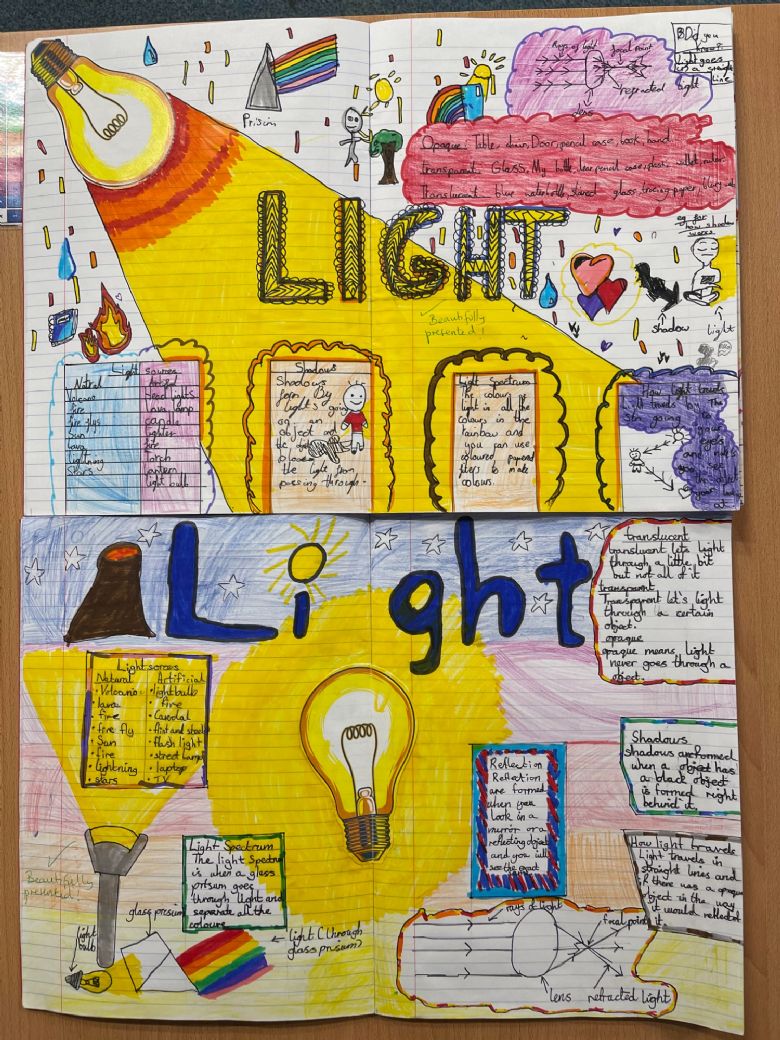 Prism
Rays of light
focal point
refracted
light
lens
Did you
know?
Light goes
in a straight
line
Opaque: Table, chair, Door, pencil case, book, hand
transparent Glass, My bottle, clear pencil case, plastic wallet, ruler
Translucent blue waterbottle, stained glass, tracing paper,
LIGHT
Beautifully
presented!
eg for
how shadow
works
shadow
light
Light sources
Natral
Volcano
fire
fire flys
Sun
lava
lightning
Stars
head lights
lava lamp
candle
lighter
torch
lantern
light bulb
Shadows
Shadows is
form By
light's going
on an
object and
the
the light from
passing through.
Light Spectrum
The colour
light is all the
colours in the
rainbow and
you can use
coloured
filters to make
colours.
How light travels
travels by The
Sun going to
your
eyes
and
you see
Light
translucent
translucent lets light
through a little bit
but not all of it
transparent
Transparent let's light
through a certain
object.
opaque
opaque means light
never goes through a
object.
Light sorses
Natural
• Volcano
• lava
• fire
• fire fly
• Sun
• fire
• lightning
• stars
Artificial
• lightbulb
• fire
• Candal
• flash light
• street Lamp
• laptop
• TV
Reflection
Reflection
are formed
when you
look in a
mirror or a
reflecting object
and you will
see the exact
Shadows
shadows are formed
when a object has
a black object
is formed right
behind it.
Light Spectrum
The light Spectrum
is when a glass
prisum goes
through light and
separate all the
coloure
How light travels
Light travels in
straight lines and
if there was a opaque
object in the way
it would reflect of
it.
Beautifully
presented!
light
bulb
glass prisum
light (through
glass prisum)
rays of light
focal point
lens
refracted light